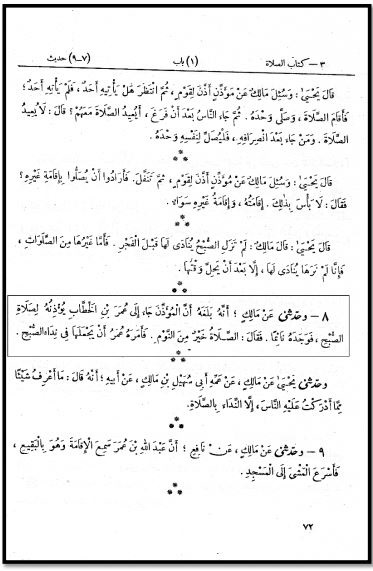 ٣ – كتاب الصلاة (١) باب (٧–٩) حديث
قالَ يَحْيَىٰ : وَسُئِلَ مَالِكٌ عَنْ مُؤَذِّنٍ أَذَّنَ لِقَوْمٍ ، ثُمَّ انْتَظَرَ هَلْ يَأْتِيهِ أَحَدٌ ، فَلَمْ يَأْتِهِ أَحَدٌ ؛
فَأَقَامَ الصَّلَاةَ ، وَصَلَّى وَحْدَهُ . ثُمَّ جَاءَ النَّاسُ بَعْدَ أَنْ فَرَغَ ، أَيُعِيدُ الصَّلَاةَ مَعَهُمْ ؟ قالَ : لَا يُعِيدُ
الصَّلَاةَ . وَمَنْ جَاءَ بَعْدَ انْصِرَافِهِ ، فَلْيُصَلِّ لِنَفْسِهِ وَحْدَهُ .
قالَ يَحْيَىٰ : وَسُئِلَ مَالِكٌ عَنْ مُؤَذِّنٍ أَذَّنَ لِقَوْمٍ ، ثُمَّ تَنَفَّلَ . فَأَرَادُوا أَنْ يُصَلُّوا بِإِقَامَةِ غَيْرِهِ ؟
فَقَالَ : لَا بَأْسَ بِذٰلِكَ . إِقَامَتُهُ ، وَإِقَامَةُ غَيْرِهِ سَوَاءٌ .
قالَ يَحْيَىٰ : قَالَ مَالِكٌ : لَمْ تَزَلِ الصُّبْحُ يُنَادَى لَهَا قَبْلَ الْفَجْرِ . فَأَمَّا غَيْرُهَا مِنَ الصَّلَوَاتِ ،
فَإِنَّا لَمْ نَرَهَا يُنَادَى لَهَا ، إِلَّا بَعْدَ أَنْ يَحِلَّ وَقْتُهَا .
٨ – وحدثنى عَنْ مَالِكٍ ؛ أَنَّهُ بَلَغَهُ أَنَّ الْمُؤَذِّنَ جَاءَ إِلَى عُمَرَ بْنِ الْخَطَّابِ يُؤْذِنُهُ لِصَلَاةِ
الصُّبْحِ ، فَوَجَدَهُ نَائِمًا . فَقَالَ : الصَّلَاةُ خَيْرٌ مِنَ النَّوْمِ . فَأَمَرَهُ عُمَرُ أَنْ يَجْعَلَهَا فِى نِدَاءِ الصُّبْحِ .
وحدثنى يَحْيَىٰ عَنْ مَالِكٍ ، عَنْ عَمِّهِ أَبِى سُهَيْلِ بْنِ مَالِكٍ ، عَنْ أَبِيهِ ؛ أَنَّهُ قَالَ : مَا أَعْرِفُ شَيْئًا
مِمَّا أَدْرَكْتُ عَلَيْهِ النَّاسَ ، إِلَّا النِّدَاءَ بِالصَّلَاةِ .
٩ – وحدثنى عَنْ مَالِكٍ ، عَنْ نَافِعٍ ؛ أَنَّ عَبْدَ اللهِ بْنَ عُمَرَ سَمِعَ الْإِقَامَةَ وَهُوَ بِالْبَقِيعِ ،
فَأَسْرَعَ الْمَشْىَ إِلَى الْمَسْجِدِ .
٧٢